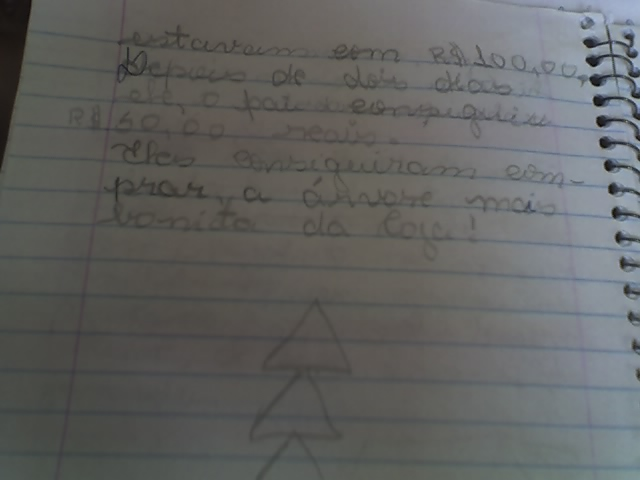 estavam com R$ 100,00,
Depois de dois dias
o pai conseguiu
R$ 50,00 reais.
Eles conseguiram com-
prar, a árvore mais
bonita da loja!